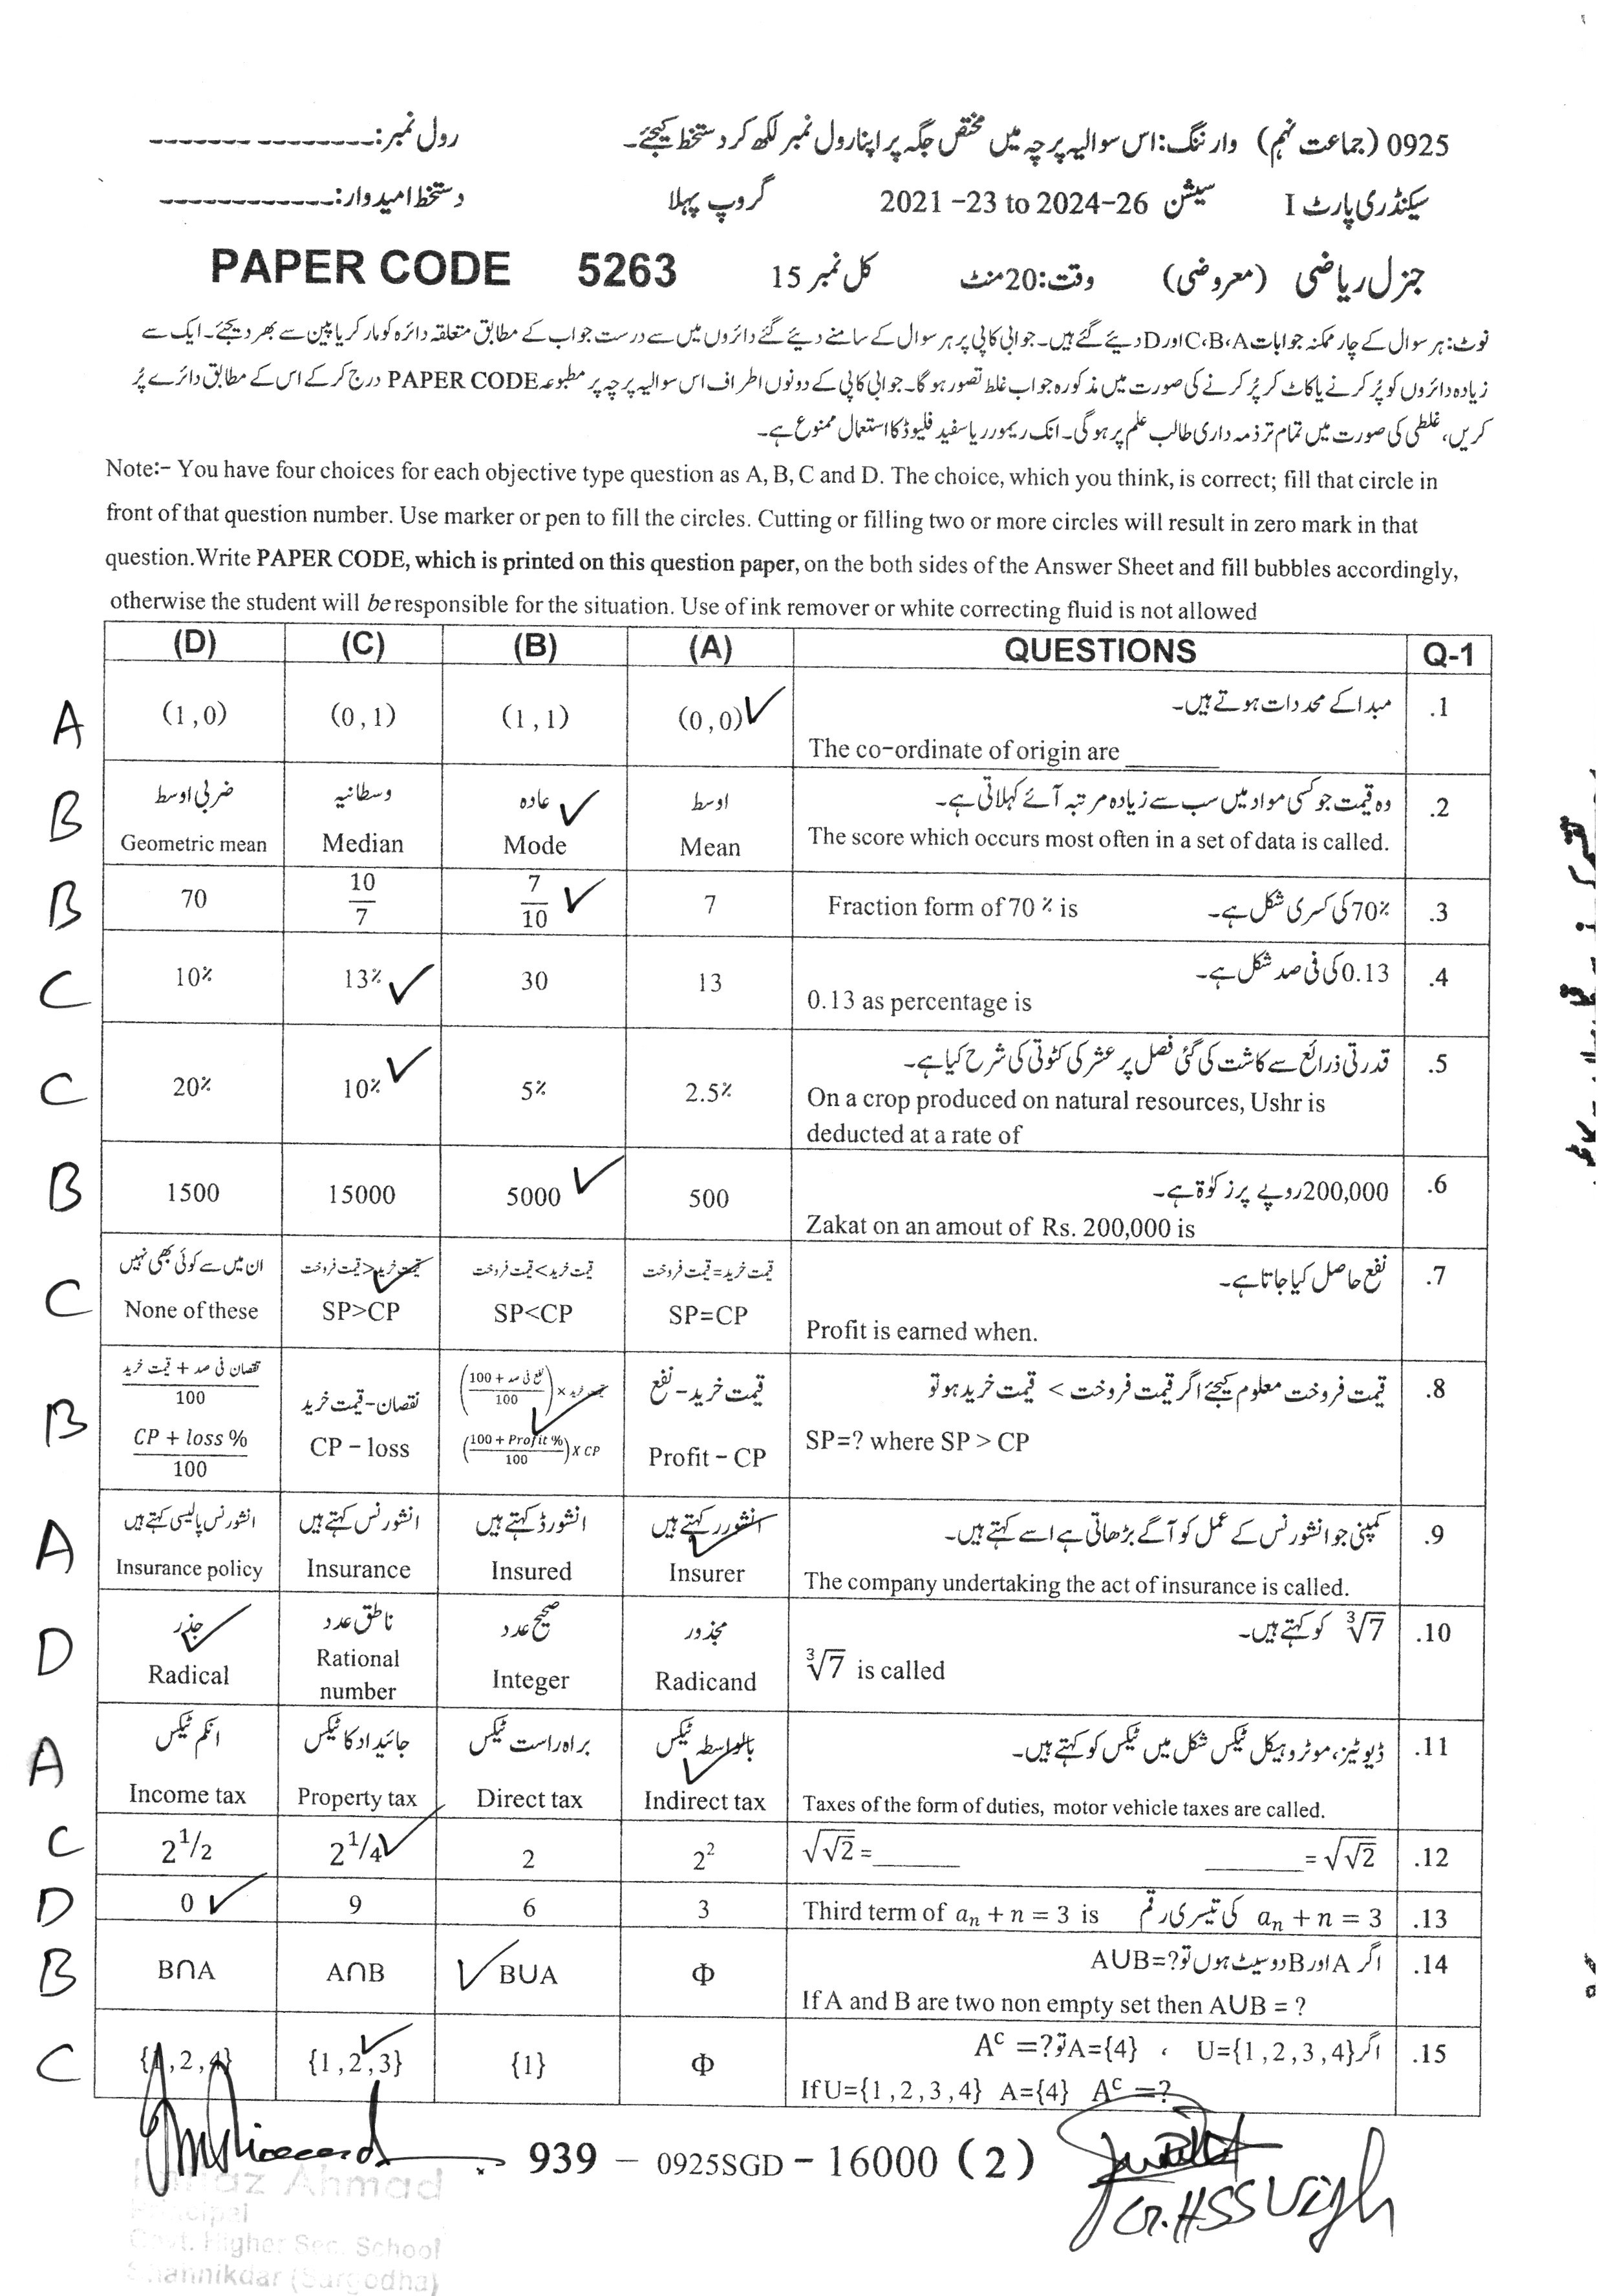 0925 (جماعت نہم) وارننگ: اس سوالیہ پرچہ میں مختص جگہ پر اپنا رول نمبر لکھ کر دستخط کیجئے۔ رول نمبر:
سیکنڈری پارٹ I سیشن 2021 –23 to 2024–26 گروپ پہلا دستخط امیدوار:
جنرل ریاضی (معروضی) وقت: 20 منٹ کل نمبر 15 PAPER CODE 5263
نوٹ: ہر سوال کے چار ممکنہ جوابات C،B،A اور D دیئے گئے ہیں۔ جوابی کاپی پر ہر سوال کے سامنے دیئے گئے دائروں میں سے درست جواب کے مطابق متعلقہ دائرہ کو مارکر یا پین سے بھر دیجئے۔ ایک سے
زیادہ دائروں کو پُر کرنے یا کاٹ کر پُر کرنے کی صورت میں مذکورہ جواب غلط تصور ہو گا۔ جوابی کاپی کے دونوں اطراف اس سوالیہ پرچہ پر مطبوعہ PAPER CODE درج کر کے اس کے مطابق دائرے پُر
کریں، غلطی کی صورت میں تمام تر ذمہ داری طالب علم پر ہوگی۔ انک ریمور ریا سفید فلیوڈ کا استعمال ممنوع ہے۔
Note:– You have four choices for each objective type question as A, B, C and D. The choice, which you think, is correct; fill that circle in
front of that question number. Use marker or pen to fill the circles. Cutting or filling two or more circles will result in zero mark in that
question.Write PAPER CODE, which is printed on this question paper, on the both sides of the Answer Sheet and fill bubbles accordingly,
otherwise the student will be responsible for the situation. Use of ink remover or white correcting fluid is not allowed
(D) (C) (B) (A) QUESTIONS Q-1
A (1,0) (0,1) (1,1) (0,0) مبدا کے محددات ہوتے ہیں۔ .1
The co-ordinate of origin are ______
B ضربی اوسط وسطانیہ عادہ اوسط وہ قیمت جو کسی مواد میں سب سے زیادہ مرتبہ آئے کہلاتی ہے۔ .2
Geometric mean Median Mode Mean The score which occurs most often in a set of data is called.
B 70 10/7 7/10 7 Fraction form of 70 % is 70% کی کسری شکل ہے۔ .3
C 10% 13% 30 13 0.13 کی فی صد شکل ہے۔ .4
0.13 as percentage is
C 20% 10% 5% 2.5% قدرتی ذرائع سے کاشت کی گئی فصل پر عشر کی کٹوتی کی شرح کیا ہے۔ .5
On a crop produced on natural resources, Ushr is
deducted at a rate of
B 1500 15000 5000 500 200,000 روپے پر زکوٰۃ ہے۔ .6
Zakat on an amout of Rs. 200,000 is
C ان میں سے کوئی بھی نہیں قیمت خرید>قیمت فروخت قیمت خرید<قیمت فروخت قیمت خرید=قیمت فروخت نفع حاصل کیا جاتا ہے۔ .7
None of these SP>CP SP<CP SP=CP Profit is earned when.
B نقصان فی صد + قیمت خرید / 100 نقصان–قیمت خرید (100 + نفع فی صد / 100) × قیمت خرید قیمت خرید – نفع قیمت فروخت معلوم کیجئے اگر قیمت فروخت > قیمت خرید ہو تو .8
CP + loss % / 100 CP – loss (100 + Profit % / 100) X CP Profit – CP SP=? where SP > CP
A انشورنس پالیسی کہتے ہیں انشورنس کہتے ہیں انشورڈ کہتے ہیں انشورر کہتے ہیں کمپنی جو انشورنس کے عمل کو آگے بڑھاتی ہے اسے کہتے ہیں۔ .9
Insurance policy Insurance Insured Insurer The company undertaking the act of insurance is called.
D جذر ناطق عدد صحیح عدد مجذور ∛7 کو کہتے ہیں۔ .10
Radical Rational number Integer Radicand ∛7 is called
A انکم ٹیکس جائیداد کا ٹیکس براہ راست ٹیکس بالواسطہ ٹیکس ڈیوٹیز، موٹر وہیکل ٹیکس شکل میں ٹیکس کو کہتے ہیں۔ .11
Income tax Property tax Direct tax Indirect tax Taxes of the form of duties, motor vehicle taxes are called.
C 2^1/2 2^1/4 2 2² √√2 =______ ______= √√2 .12
D 0 9 6 3 Third term of aₙ + n = 3 is aₙ + n = 3 کی تیسری رقم .13
B B∩A A∩B B∪A Φ اگر A اور B دو سیٹ ہوں تو ?=A∪B .14
If A and B are two non empty set then A∪B = ?
C {1,2,4} {1,2,3} {1} Φ اگر U={1,2,3,4} ، A={4} تو ?= Aᶜ .15
If U={1,2,3,4} A={4} Aᶜ =?
939 – 0925SGD – 16000 (2)
Ahmad
Principal
Govt. Higher Sec. School
(Sargodha)